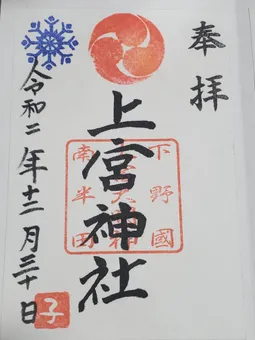 奉拝
上宮神社
下野國
南半田
令和二年十二月三十日
子